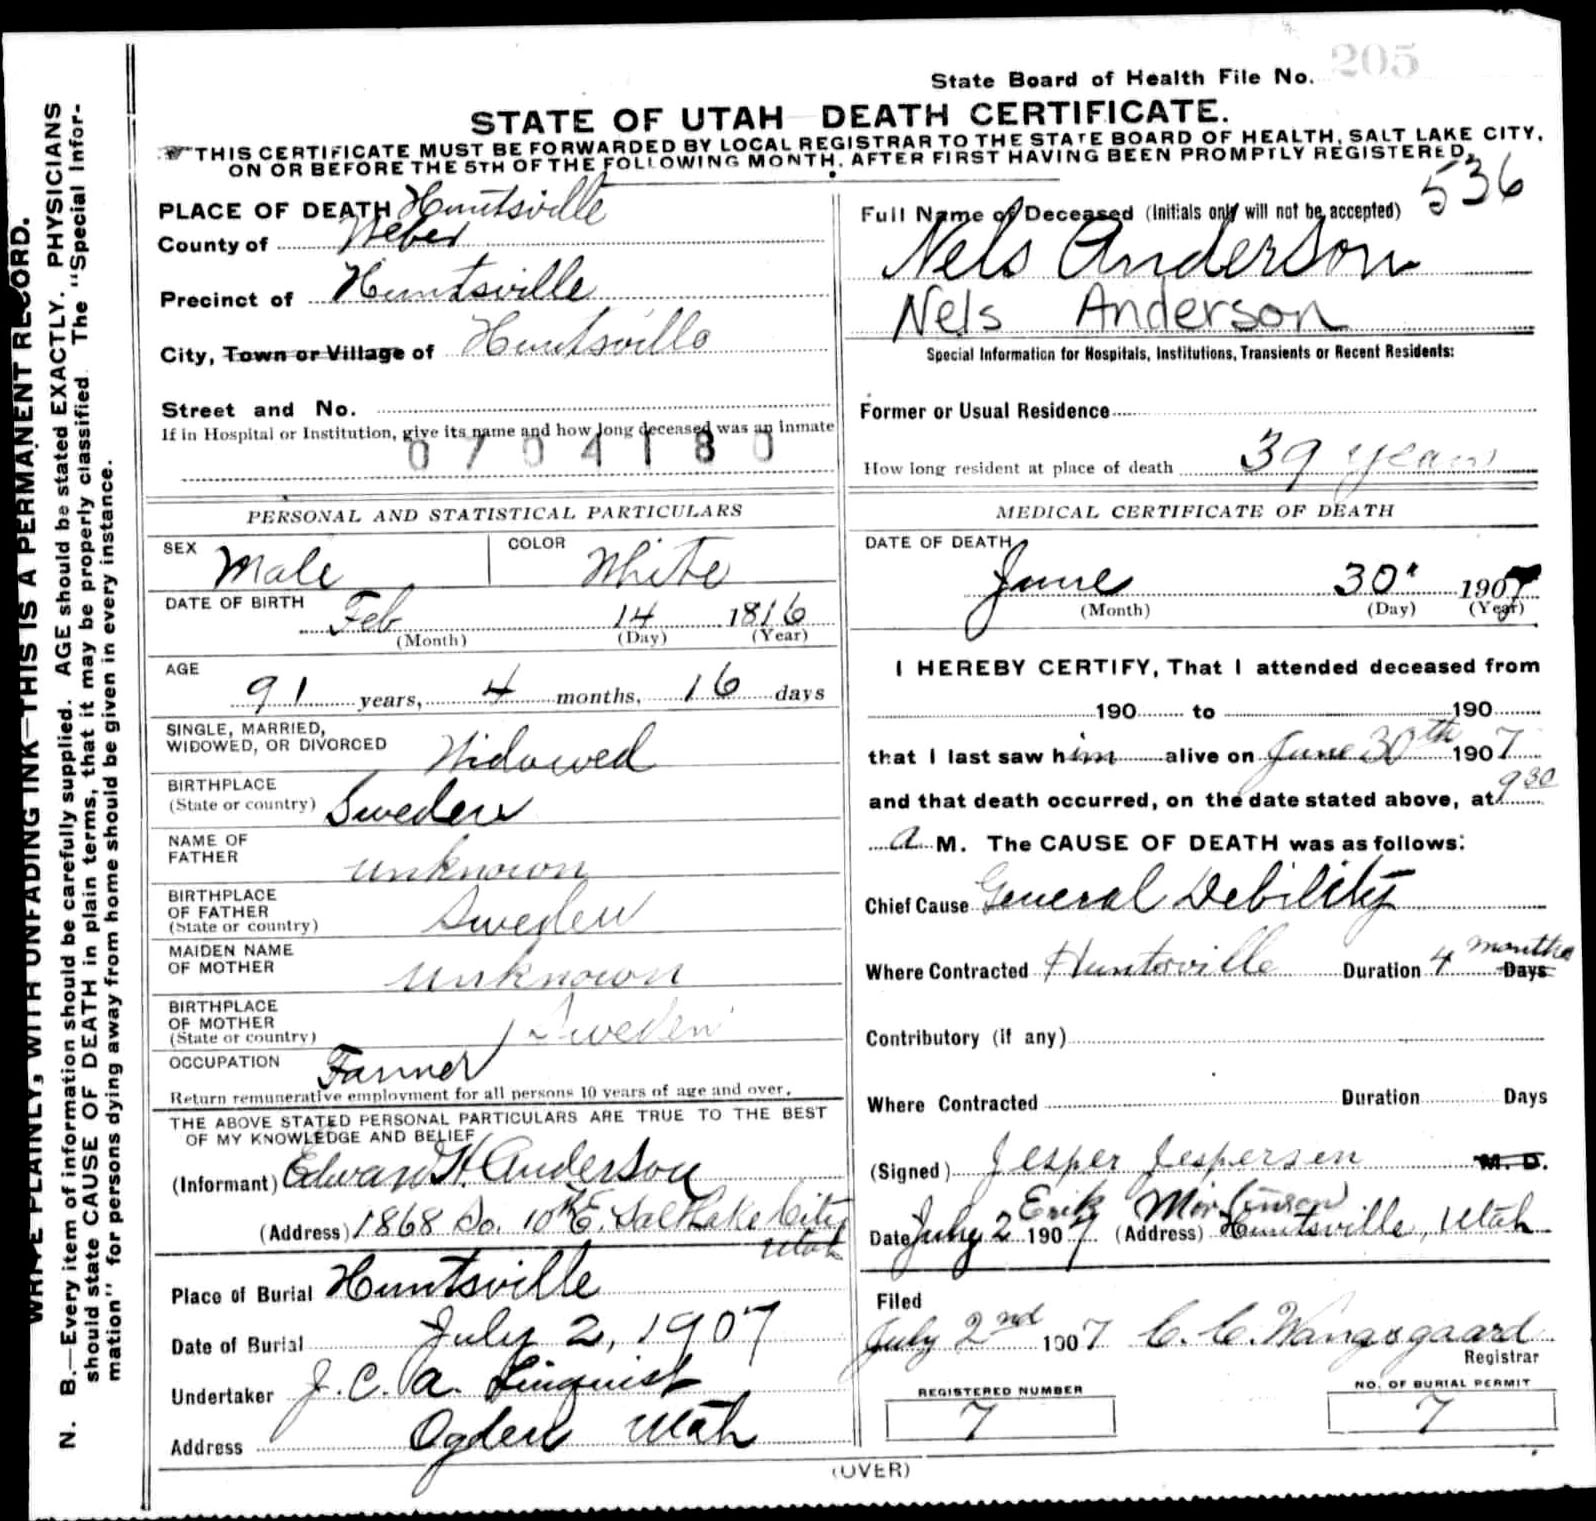 State Board of Health File No. 205
STATE OF UTAH DEATH CERTIFICATE.
THIS CERTIFICATE MUST BE FORWARDED BY LOCAL REGISTRAR TO THE STATE BOARD OF HEALTH, SALT LAKE CITY,
ON OR BEFORE THE 5TH OF THE FOLLOWING MONTH, AFTER FIRST HAVING BEEN PROMPTLY REGISTERED.
536
PLACE OF DEATH Huntsville
County of Weber
Precinct of Huntsville
City, Town or Village of Huntsville
Street and No.
If in Hospital or Institution, give its name and how long deceased was an inmate
0704180
PERSONAL AND STATISTICAL PARTICULARS
SEX Male COLOR White
DATE OF BIRTH Feb 14 1816
(Month) (Day) (Year)
AGE
91 years, 4 months, 16 days
SINGLE, MARRIED,
WIDOWED, OR DIVORCED Widowed
BIRTHPLACE
(State or country) Sweden
NAME OF
FATHER unknown
BIRTHPLACE
OF FATHER
(State or country) Sweden
MAIDEN NAME
OF MOTHER unknown
BIRTHPLACE
OF MOTHER
(State or country) Sweden
OCCUPATION Farmer
Return remunerative employment for all persons 10 years of age and over.
THE ABOVE STATED PERSONAL PARTICULARS ARE TRUE TO THE BEST
OF MY KNOWLEDGE AND BELIEF
(Informant) Edward H. Anderson
(Address) 1868 So. 10th E. Salt Lake City
Utah
Place of Burial Huntsville
Date of Burial July 2, 1907
Undertaker J. C. A. Linquist
Address Ogden Utah
Full Name of Deceased (Initials only will not be accepted)
Nels Anderson
Nels Anderson
Special Information for Hospitals, Institutions, Transients or Recent Residents:
Former or Usual Residence
How long resident at place of death 39 years
MEDICAL CERTIFICATE OF DEATH
DATE OF DEATH
June 30 1907
(Month) (Day) (Year)
I HEREBY CERTIFY, That I attended deceased from
190 to 190
that I last saw him alive on June 30th 1907
and that death occurred, on the date stated above, at 9 30
a M. The CAUSE OF DEATH was as follows:
Chief Cause General Debility
Where Contracted Huntsville Duration 4 months Days
Contributory (if any)
Where Contracted Duration Days
(Signed) Jesper Jespersen M. D.
Erik
Date July 2 1907 (Address) Huntsville, Utah
Filed
July 2nd 1907 C. C. Wangsgaard
Registrar
REGISTERED NUMBER
7
NO. OF BURIAL PERMIT
7
(OVER)
WRITE PLAINLY, WITH UNFADING INK—THIS IS A PERMANENT RECORD.
N. B.—Every item of information should be carefully supplied. AGE should be stated EXACTLY. PHYSICIANS
should state CAUSE OF DEATH in plain terms, that it may be properly classified. The "Special Infor-
mation" for persons dying away from home should be given in every instance.